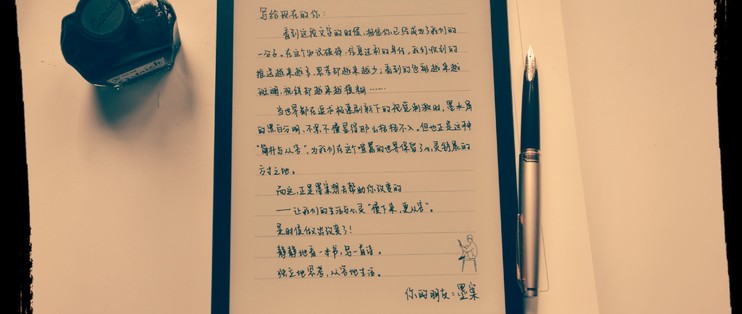 写给现在的你：
看到这段文字的时候，相信你已经成为了我们的
一分子。在这个知识碎得，信息过剩的年代，我们收到的
推送越来越多，思考却越来越少；看到的色彩越来越
斑斓，视线却越来越模糊……
当世界都在追求极速刷新下的视觉刺激时，墨水屏
的黑白分明，不紧不慢显得那么格格不入。但也正是这种
“简朴与从容”，为我们在这个喧嚣的世界保留了心灵舒展的
方寸之地。
而这，正是墨案想去帮助你改变的
——让我们的生活与心灵“慢下来，更从容”。
是时候做出改变了！
静静地看一本书，写一首诗。
独立地思考，从容地生活。
你的朋友：墨案